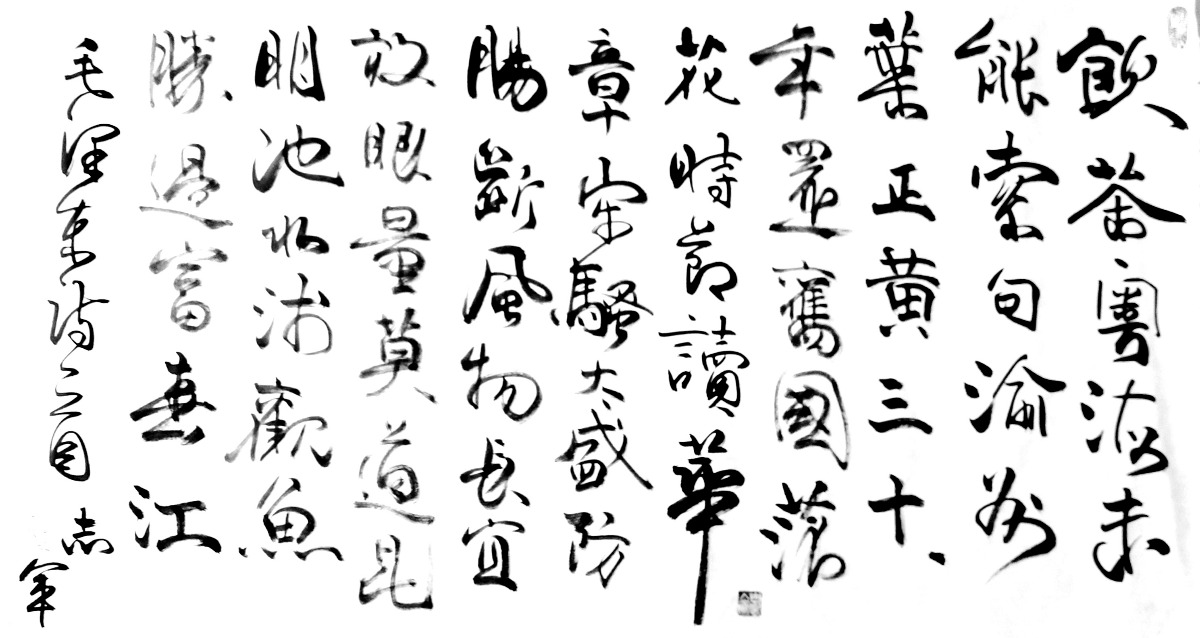 飲茶粵海未
能索句渝州
葉正黃三十
年還舊國落
花時節讀華
章牢騷太盛防
腸斷風物長宜
放眼量莫道昆
明池水淺觀魚
勝過富春江
毛澤東詩 志
軍